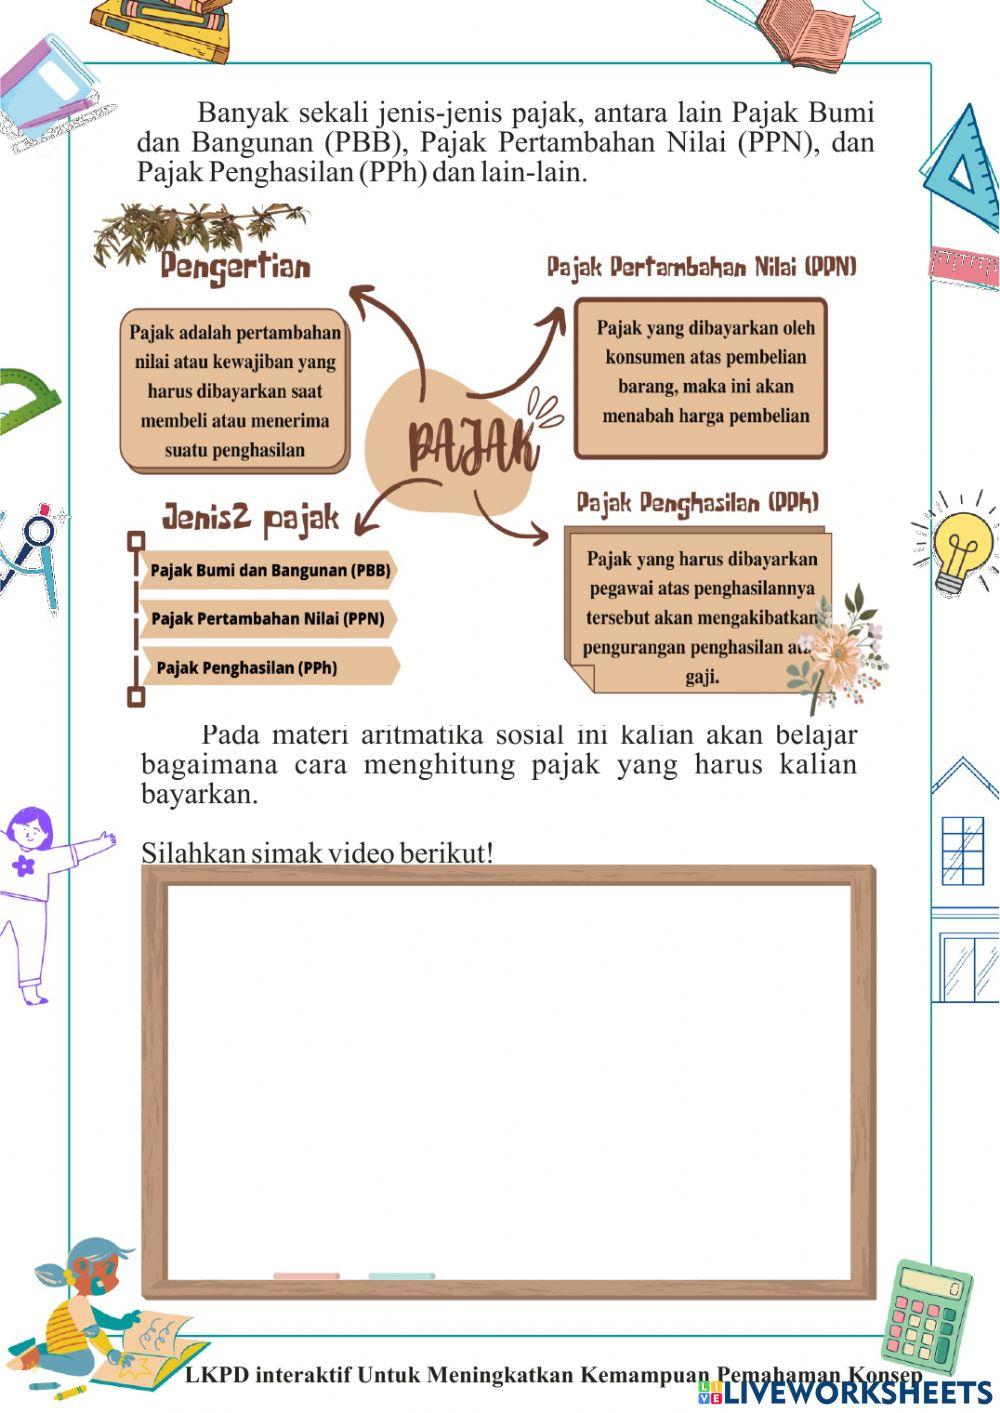 Banyak sekali jenis-jenis pajak, antara lain Pajak Bumi
dan Bangunan (PBB), Pajak Pertambahan Nilai (PPN), dan
Pajak Penghasilan (PPh) dan lain-lain.
Pengertian
Pajak adalah pertambahan
nilai atau kewajiban yang
harus dibayarkan saat
membeli atau menerima
suatu penghasilan
Pajak Pertambahan Nilai (PPN)
Pajak yang dibayarkan oleh
konsumen atas pembelian
barang, maka ini akan
menabah harga pembelian
PAJAK
Jenis2 pajak
Pajak Bumi dan Bangunan (PBB)
Pajak Pertambahan Nilai (PPN)
Pajak Penghasilan (PPh)
Pajak Penghasilan (PPh)
Pajak yang harus dibayarkan
pegawai atas penghasilannya
tersebut akan mengakibatkan
pengurangan penghasilan
gaji.
Pada materi aritmatika sosial ini kalian akan belajar
bagaimana cara menghitung pajak yang harus kalian
bayarkan.
Silahkan simak video berikut!
0
LKPD interaktif Untuk Meningkatkan Kemampuan Pemahaman Konsep
LIVE LIVEWORKSHEETS